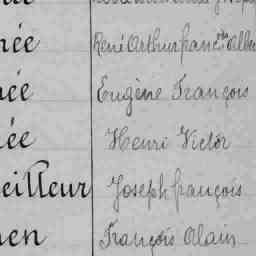 née René Arthur franc
née Eugène François
née Henri Victor
eilleur Joseph françois
nen François Alain